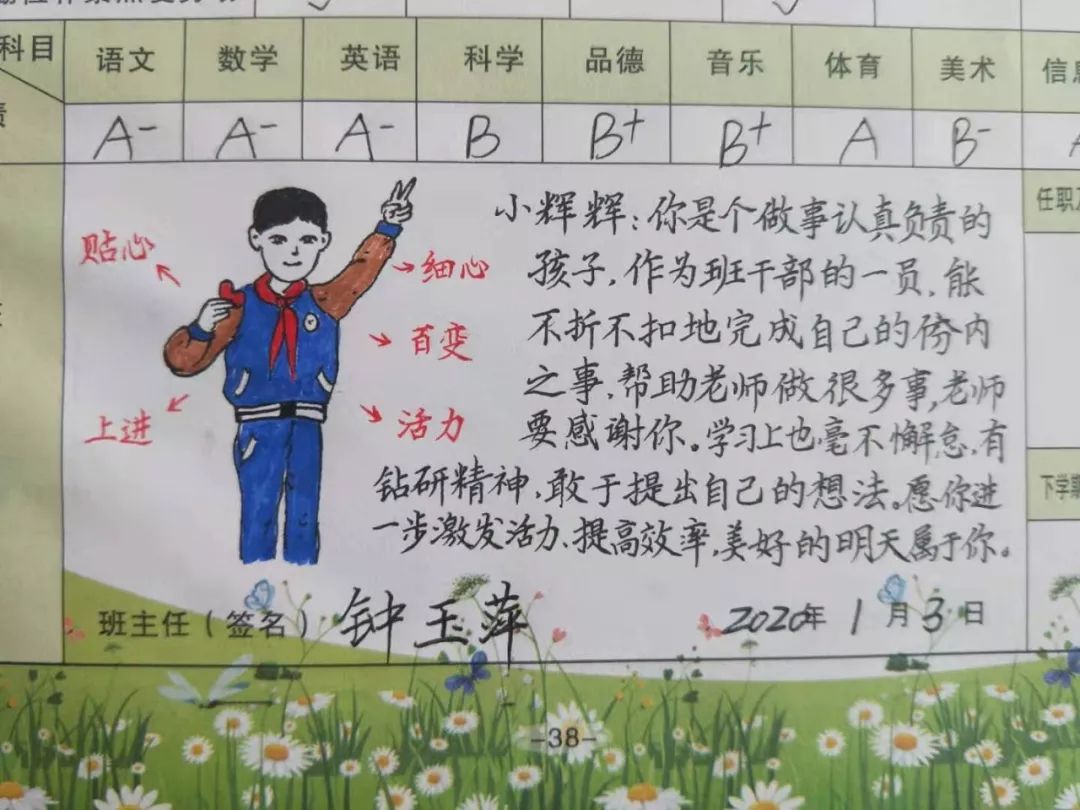 科目 语文 数学 英语 科学 品德 音乐 体育 美术 信息
A- A- A- B B+ B+ A B-
任职
贴心
细心
百变
上进
活力
小辉辉:你是个做事认真负责的
孩子,作为班干部的一员,能
不折不扣地完成自己的份内
之事,帮助老师做很多事,老师
要感谢你。学习上也毫不懈怠,有
钻研精神,敢于提出自己的想法。愿你进
一步激发活力、提高效率,美好的明天属于你。
下学期
班主任(签名)钟玉萍 2020年1月3日
-38-